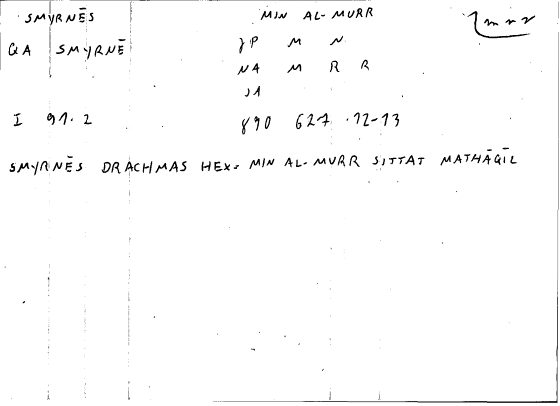 SMYRNĒS MIN AL-MURR
GA SMYRNĒ γP M N
NA M R R
JA
I 91.2 γ90 627 .12-13
SMYRNĒS DRACHMAS HEX= MIN AL-MURR SITTAT MATHĀQĪL